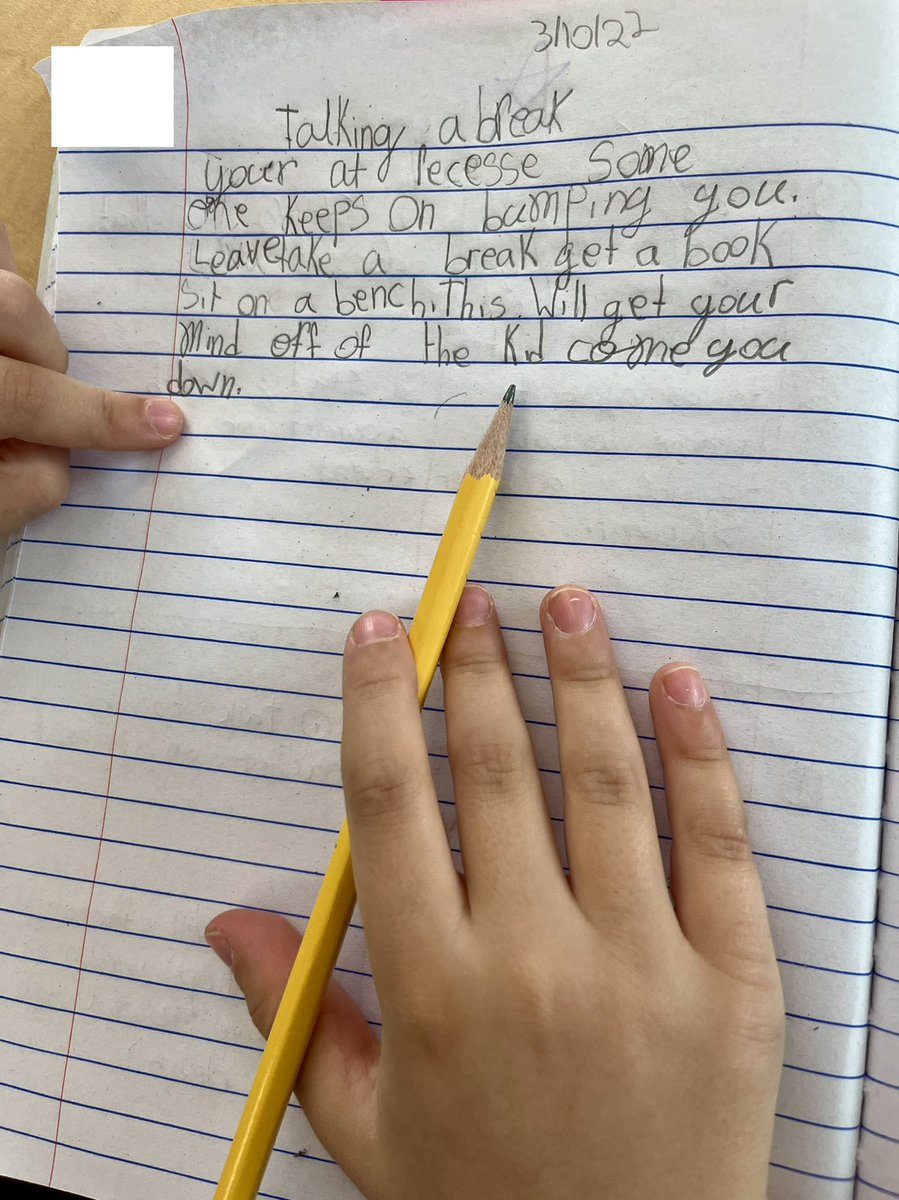 3/10/22
Talking a break
your at recesse Some
one keeps on bumping you.
Leave take a break get a book
Sit on a bench. This will get your
mind off of the kid come you
down.